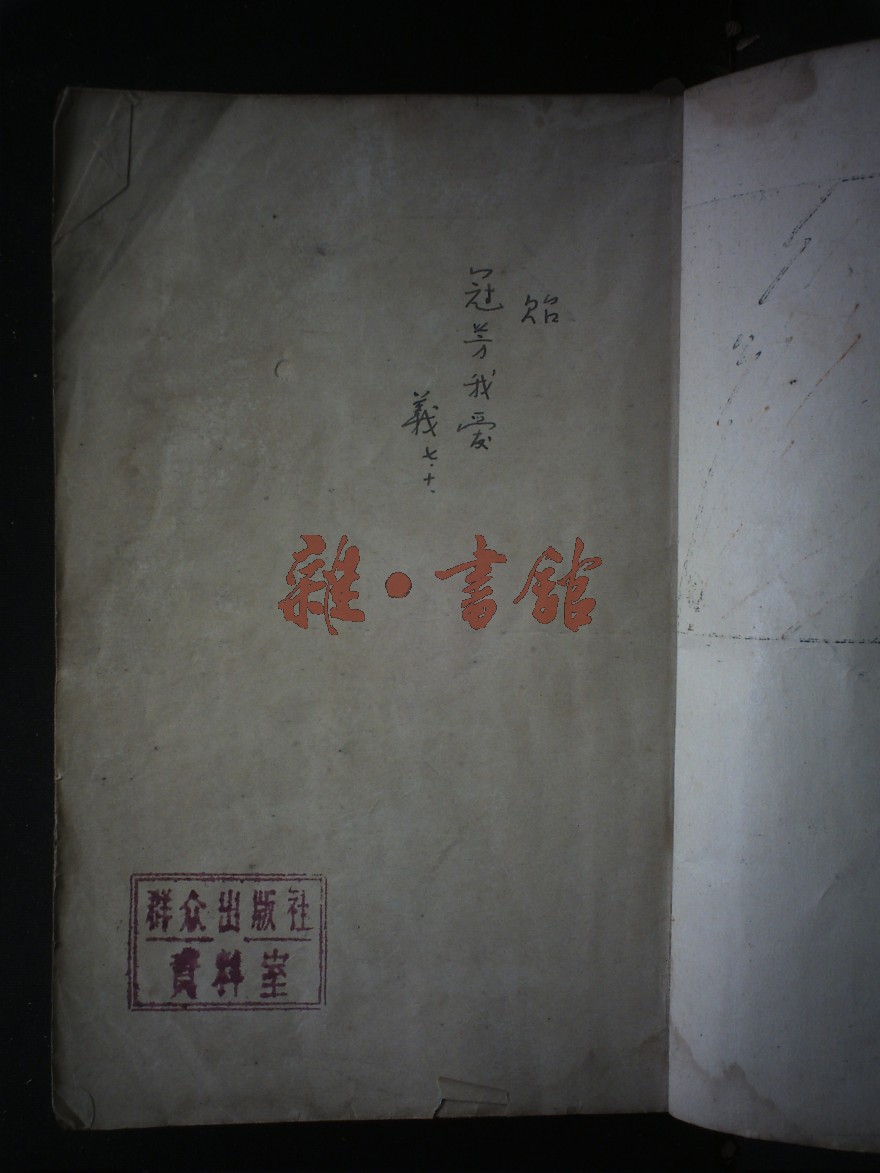 贻
冠芳我爱
義 七.十.
雜•書館
群众出版社
資料室